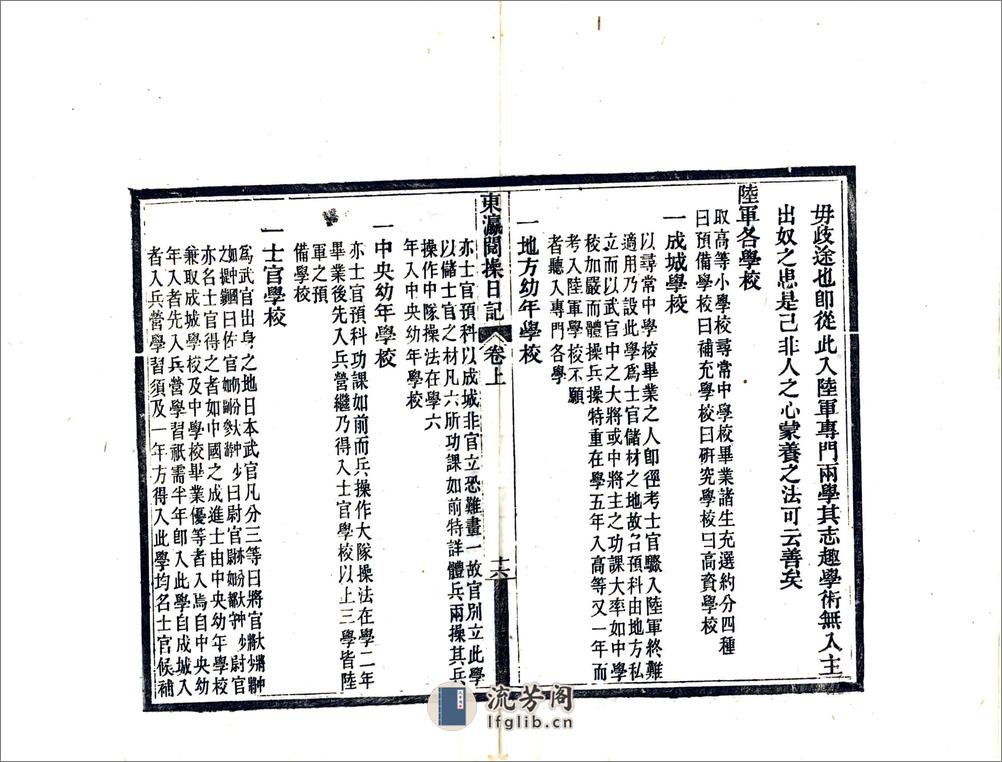 毋歧途也卽從此入陸軍專門兩學其志趣學術無入主
出奴之患是己非人之心蒙養之法可云善矣
陸軍各學校
取高等小學校尋常中學校畢業諸生充選約分四種
曰預備學校曰補充學校曰研究學校曰高資學校
一成城學校
以尋常中學校畢業之人卽徑考士官驟入陸軍終難
適用乃設此學爲士官儲材之地故名預科由地方私
立而以武官中之大將或中將主之功課大率如中學
稜加嚴而體操兵操特重在學五年入高等又一年而
考入陸軍學校不願
者聽入專門各學
一地方幼年學校
亦士官預科以成城非官立恐難畫一故官別立此學
以儲士官之材凡六所功課如前特詳體兵兩操其兵
操作中隊操法在學六
年入中央幼年學校
東瀛閱操日記 卷上 十六
一中央幼年學校
亦士官預科功課如前而兵操作大隊操法在學二年
畢業後先入兵營繼乃得入士官學校以上三學皆陸
軍之預
備學校
一士官學校
爲武官出身之地日本武官凡分三等曰將官
曰佐官 曰尉官 尉官
亦名士官得之者如中國之成進士由中央幼年學校
兼取成城學校及中學校畢業優等者入焉自中央幼
年入者先入兵營學習祇需半年卽入此學自成城入
者入兵營學習須及一年方得入此學均名士官候補
流芳阁
lfglib.cn